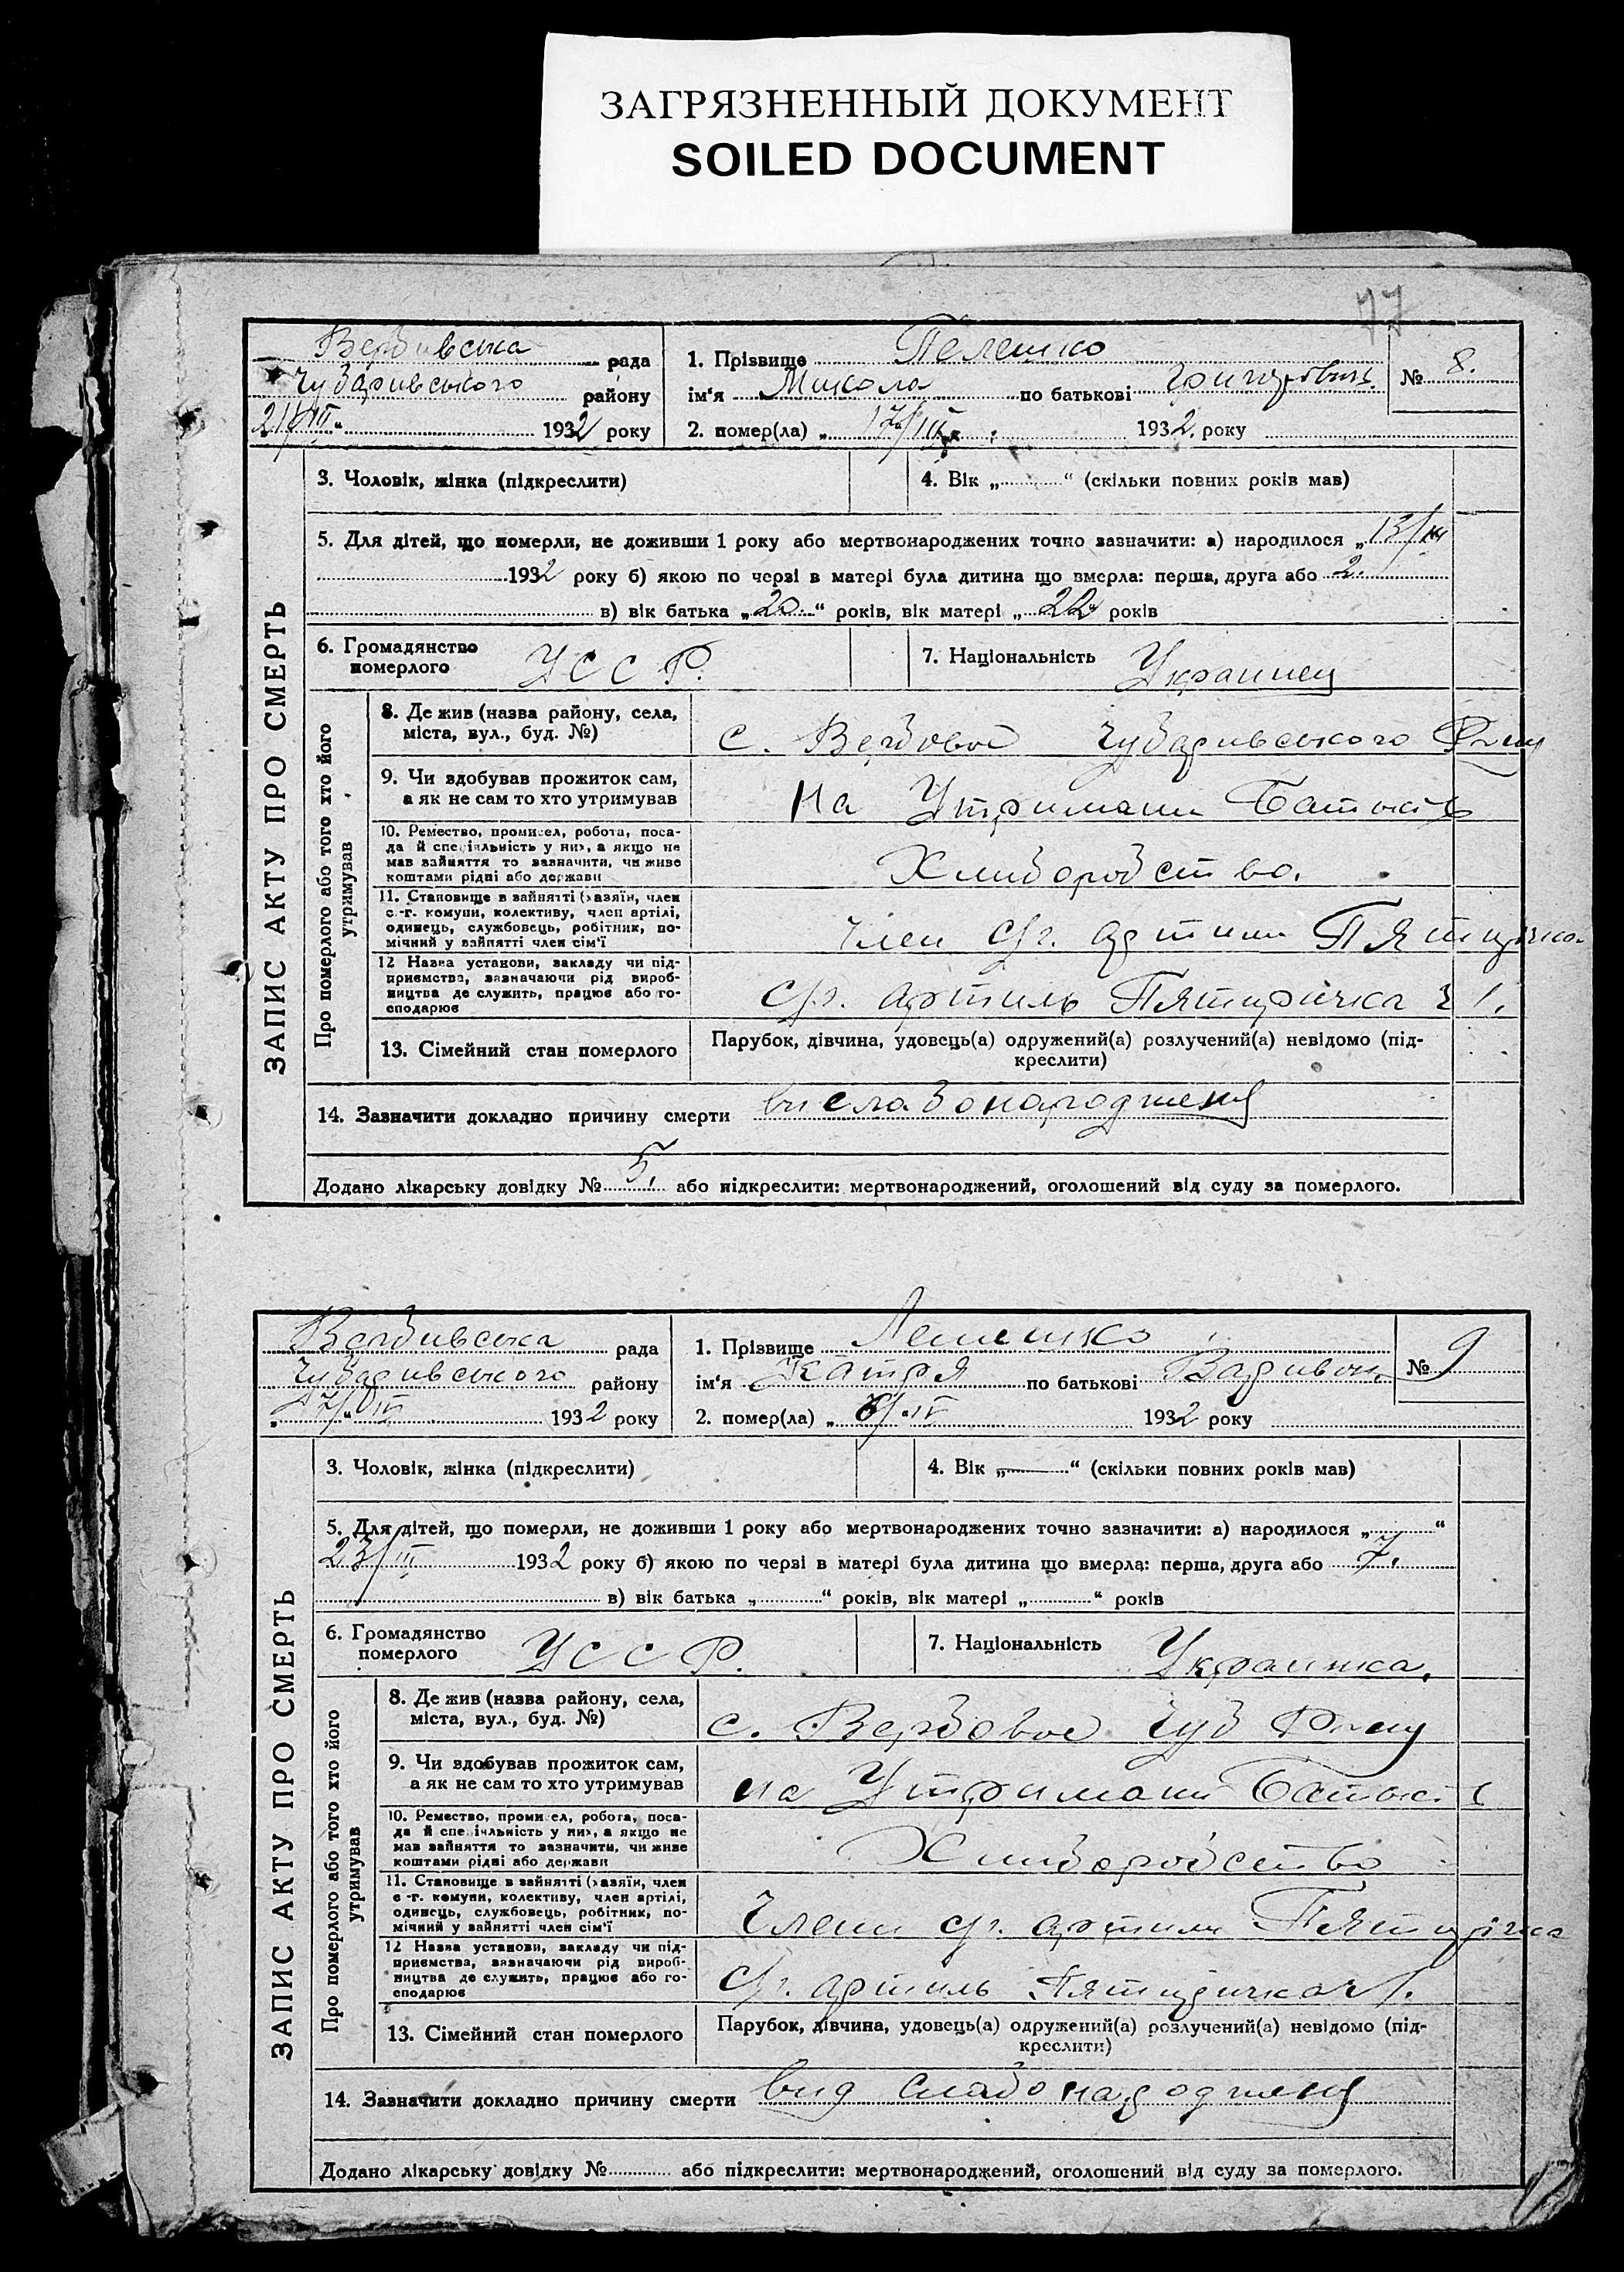 ЗАГРЯЗНЕННЫЙ ДОКУМЕНТ
SOILED DOCUMENT
77
ЗАПИС АКТУ ПРО СМЕРТЬ
Вербивська рада
Чубаривського району
21/III 1932 року
1. Прізвище Пелешко
ім‘я Микола по батькові Григорович
№ 8.
2. помер(ла) „ 17/III 1932. року
3. Чоловік, жінка (підкреслити)
4. Вік „ “ (скільки повних років мав)
5. Для дітей, що померли, не доживши 1 року або мертвонароджених точно зазначити: а) народилося „ 13/III
1932 року б) якою по черзі в матері була дитина що вмерла: перша, друга або 2.
в) вік батька „20.“ років, вік матері „22“ років
6. Громадянство
померлого УССР.
7. Національність Украинец
Про померлого або того хто його
утримував
8. Де жив (назва району, села,
міста, вул., буд. №)
с. Вербовое Чубаривського Р-ну
9. Чи здобував прожиток сам,
а як не сам то хто утримував
на Утримани Батькив
10. Ремество, промисел, робота, поса-
да й спеціяльність у них, а якщо не
мав зайняття то зазначити, чи живе
коштами рідні або держави
Хлиборобство.
11. Становище в зайнятті (хазяїн, член
с.-г. комуни, колективу, член артілі,
одинець, службовець, робітник, по-
мічний у зайнятті член сім'ї
член с/г. артили Пятирічка
12 Назва установи, закладу чи під-
приємства, зазначаючи рід вироб-
ництва де служить, працює або го-
сподарює
с/г. артиль Пятиричка ч 1.
13. Сімейний стан померлого
Парубок, дівчина, удовець(а) одружений(а) розлучений(а) невідомо (під-
креслити)
14. Зазначити докладно причину смерти
слабонародженя
Додано лікарську довідку № 5, або підкреслити: мертвонароджений, оголошений від суду за померлого.
ЗАПИС АКТУ ПРО СМЕРТЬ
Вербивська рада
Чубаривського району
„ 7/IV 1932 року
1. Прізвище Лемешко
ім‘я Катря по батькові
№ 9
2. помер(ла) „ 6/IV 1932 року
3. Чоловік, жінка (підкреслити)
4. Вік „ “ (скільки повних років мав)
5. Для дітей, що померли, не доживши 1 року або мертвонароджених точно зазначити: а) народилося „ “
23/III 1932 року б) якою по черзі в матері була дитина що вмерла: перша, друга або 7.
в) вік батька „ “ років, вік матері „ “ років
6. Громадянство
померлого УССР.
7. Національність Украинка.
Про померлого або того хто його
утримував
8. Де жив (назва району, села,
міста, вул., буд. №)
с. Вербовое Чуб Р-ну
9. Чи здобував прожиток сам,
а як не сам то хто утримував
на Утримани Батькив
10. Ремество, промисел, робота, поса-
да й спеціяльність у них, а якщо не
мав зайняття то зазначити, чи живе
коштами рідні або держави
Хлиборобство
11. Становище в зайнятті (хазяїн, член
с-г. комуни, колективу, член артілі,
одинець, службовець, робітник, по-
мічний у зайнятті член сім'ї
Члени с/г. артили Пятирічка
12 Назва установи, закладу чи під-
приємства, зазначаючи рід вироб-
ництва де служить, працює або го-
сподарює
с/г. артиль Пятиричка ч 1.
13. Сімейний стан померлого
Парубок, дівчина, удовець(а) одружений(а) розлучений(а) невідомо (під-
креслити)
14. Зазначити докладно причину смерти
вид слабонародженя
Додано лікарську довідку № або підкреслити: мертвонароджений, оголошений від суду за померлого.